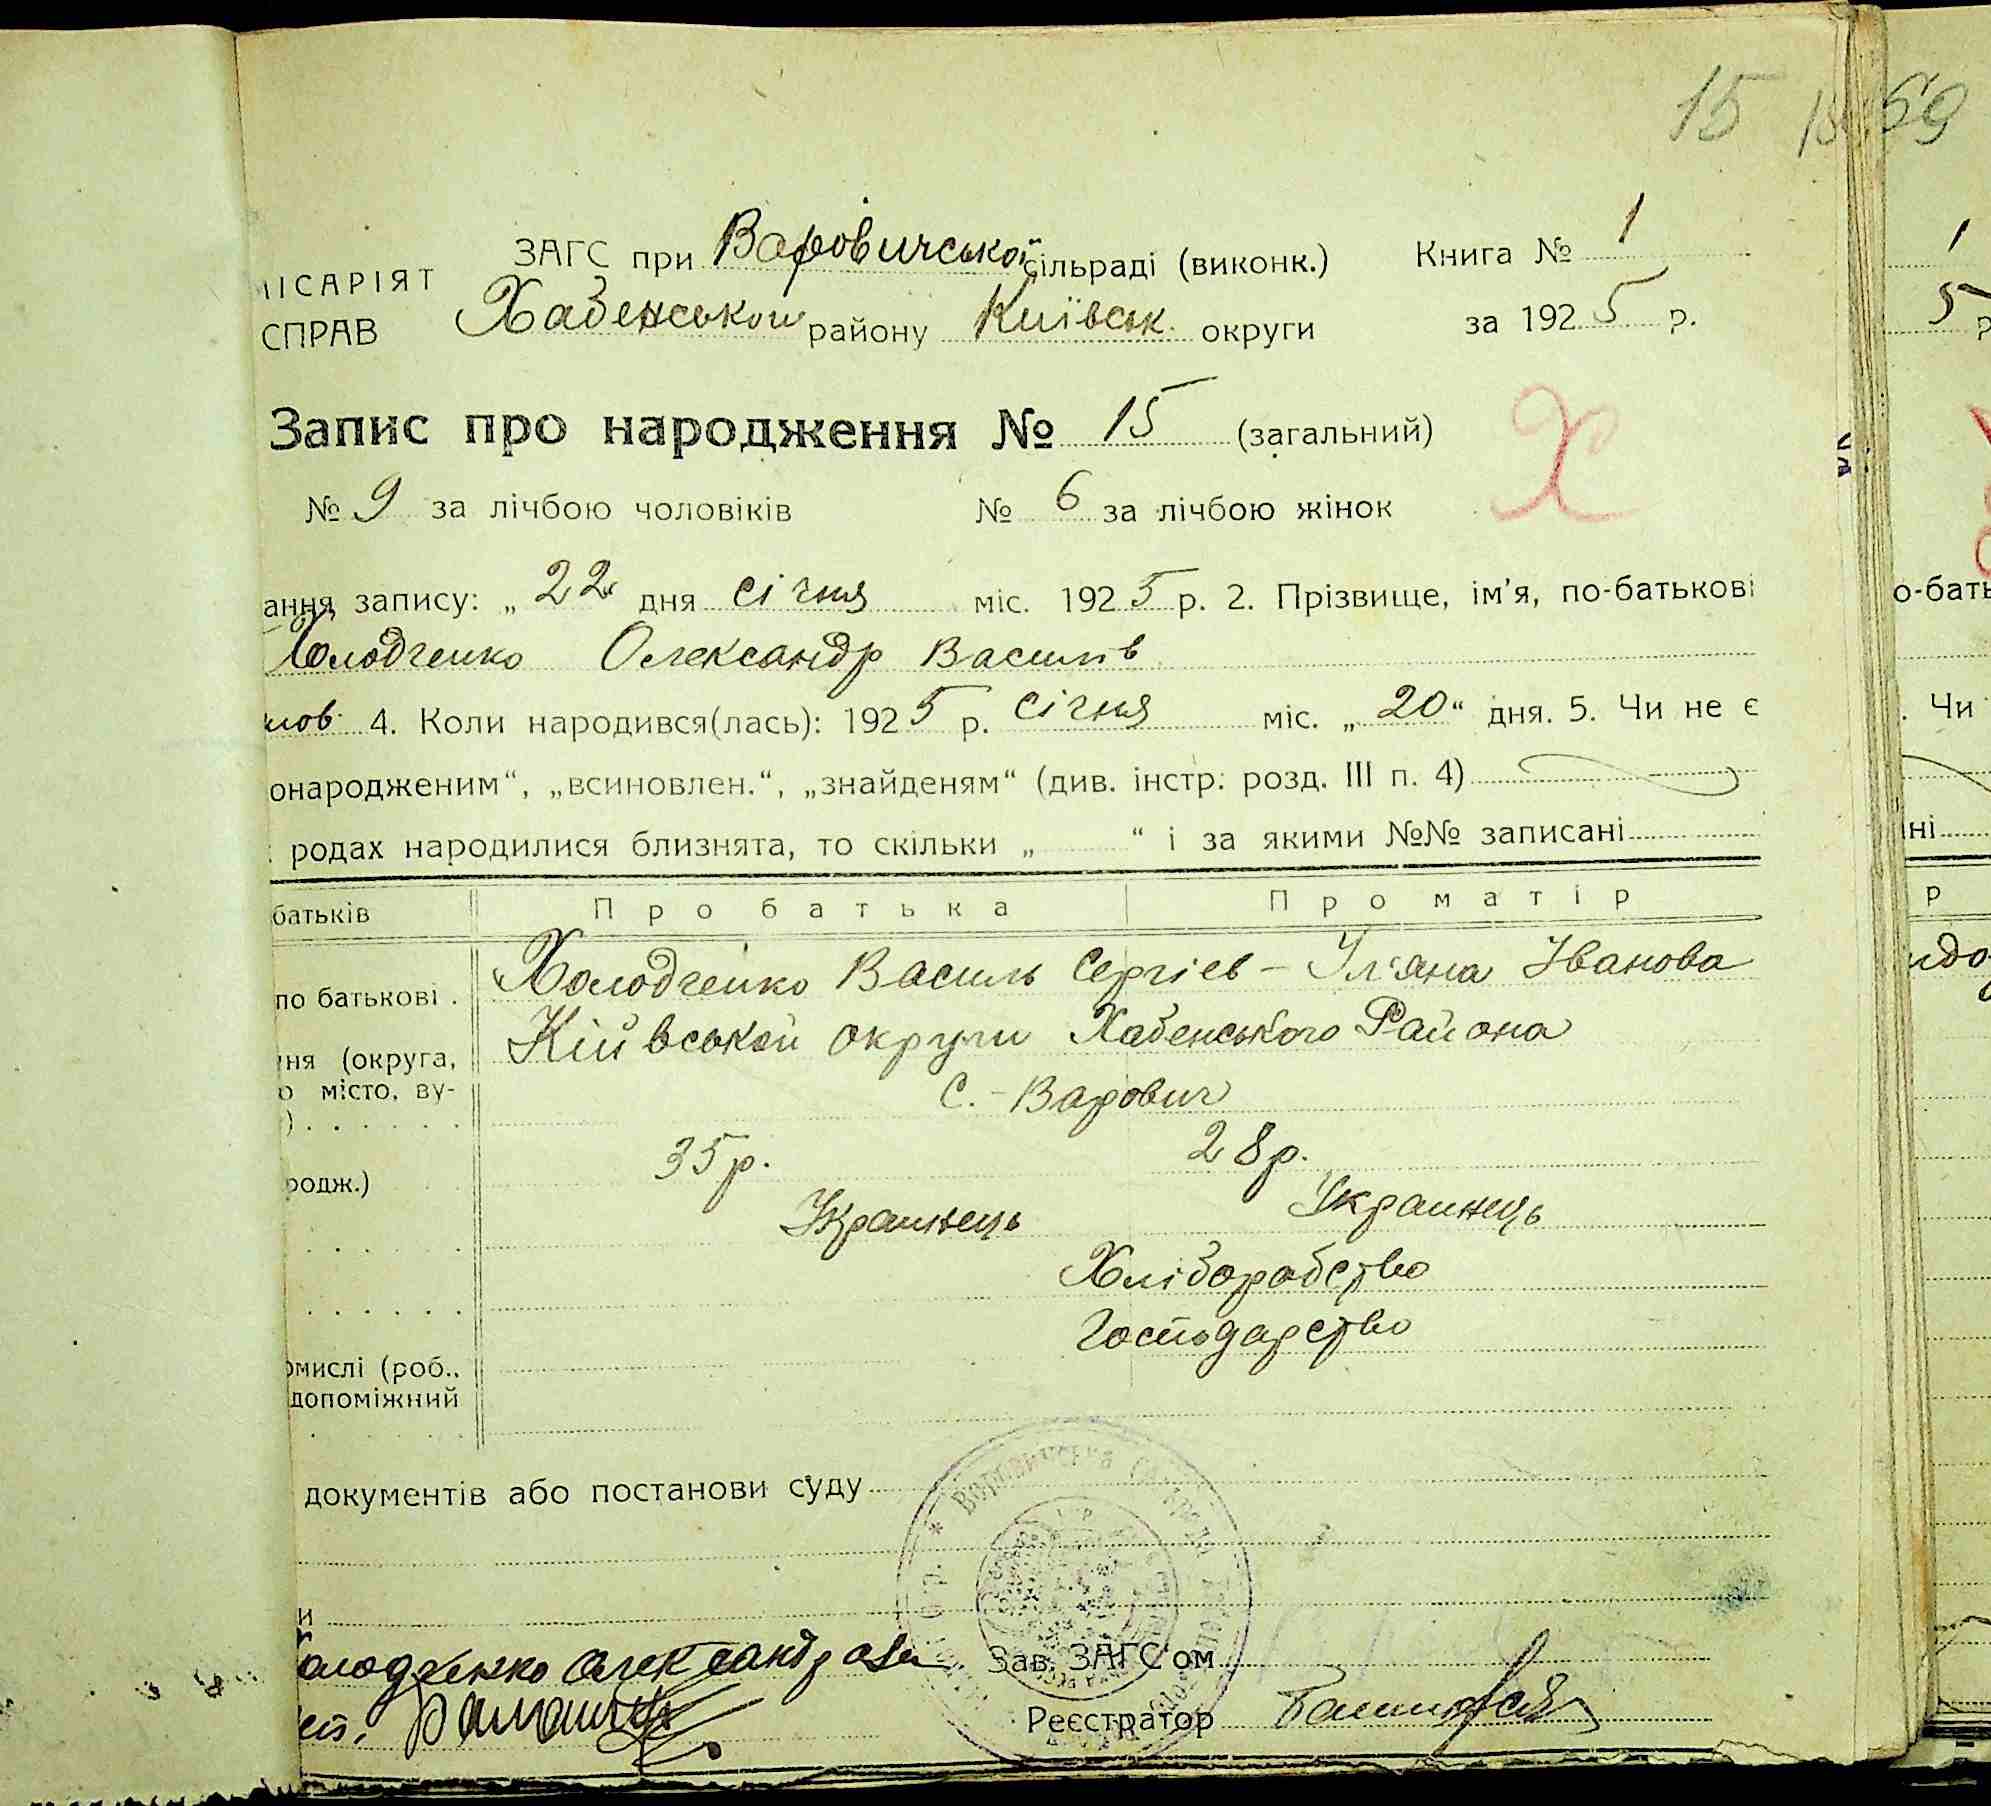 15 69
ЗАГС при Варовичськой сільраді (виконк.) Книга № 1
ІСАРІЯТ
СПРАВ Хабенськои району Київськ. округи за 1925 р.
Запис про народження № 15 (загальний) Х
№ 9 за лічбою чоловіків № 6 за лічбою жінок
ання запису: „22 дня січня міс. 1925 р. 2. Прізвище, ім'я, по-батькові
Холодченко Олександр Василів
4. Коли народився(лась): 1925 р. січня міс. „20“ дня. 5. Чи не є
онародженим“, „всиновлен.“, „знайденям“ (див. інстр. розд. III п. 4)
родах народилися близнята, то скільки „ “ і за якими №№ записані
батьків Про батька Про матір
по батькові . Холодченко Василь Сергіев - Ул'яна Іванова
ня (округа, Кіивськой округи Хабенського Района
о місто, ву- С. - Варович
) . . . . . .
родж.) 35 р. 28 р.
Украинець Украинець
Хліборобство
Господарство
омислі (роб.,
допоміжний
документів або постанови суду
и
олодченко Олександра Зав. ЗАГС'ом
Реєстратор
1
5 р
о-бать
. Чи
ні
р